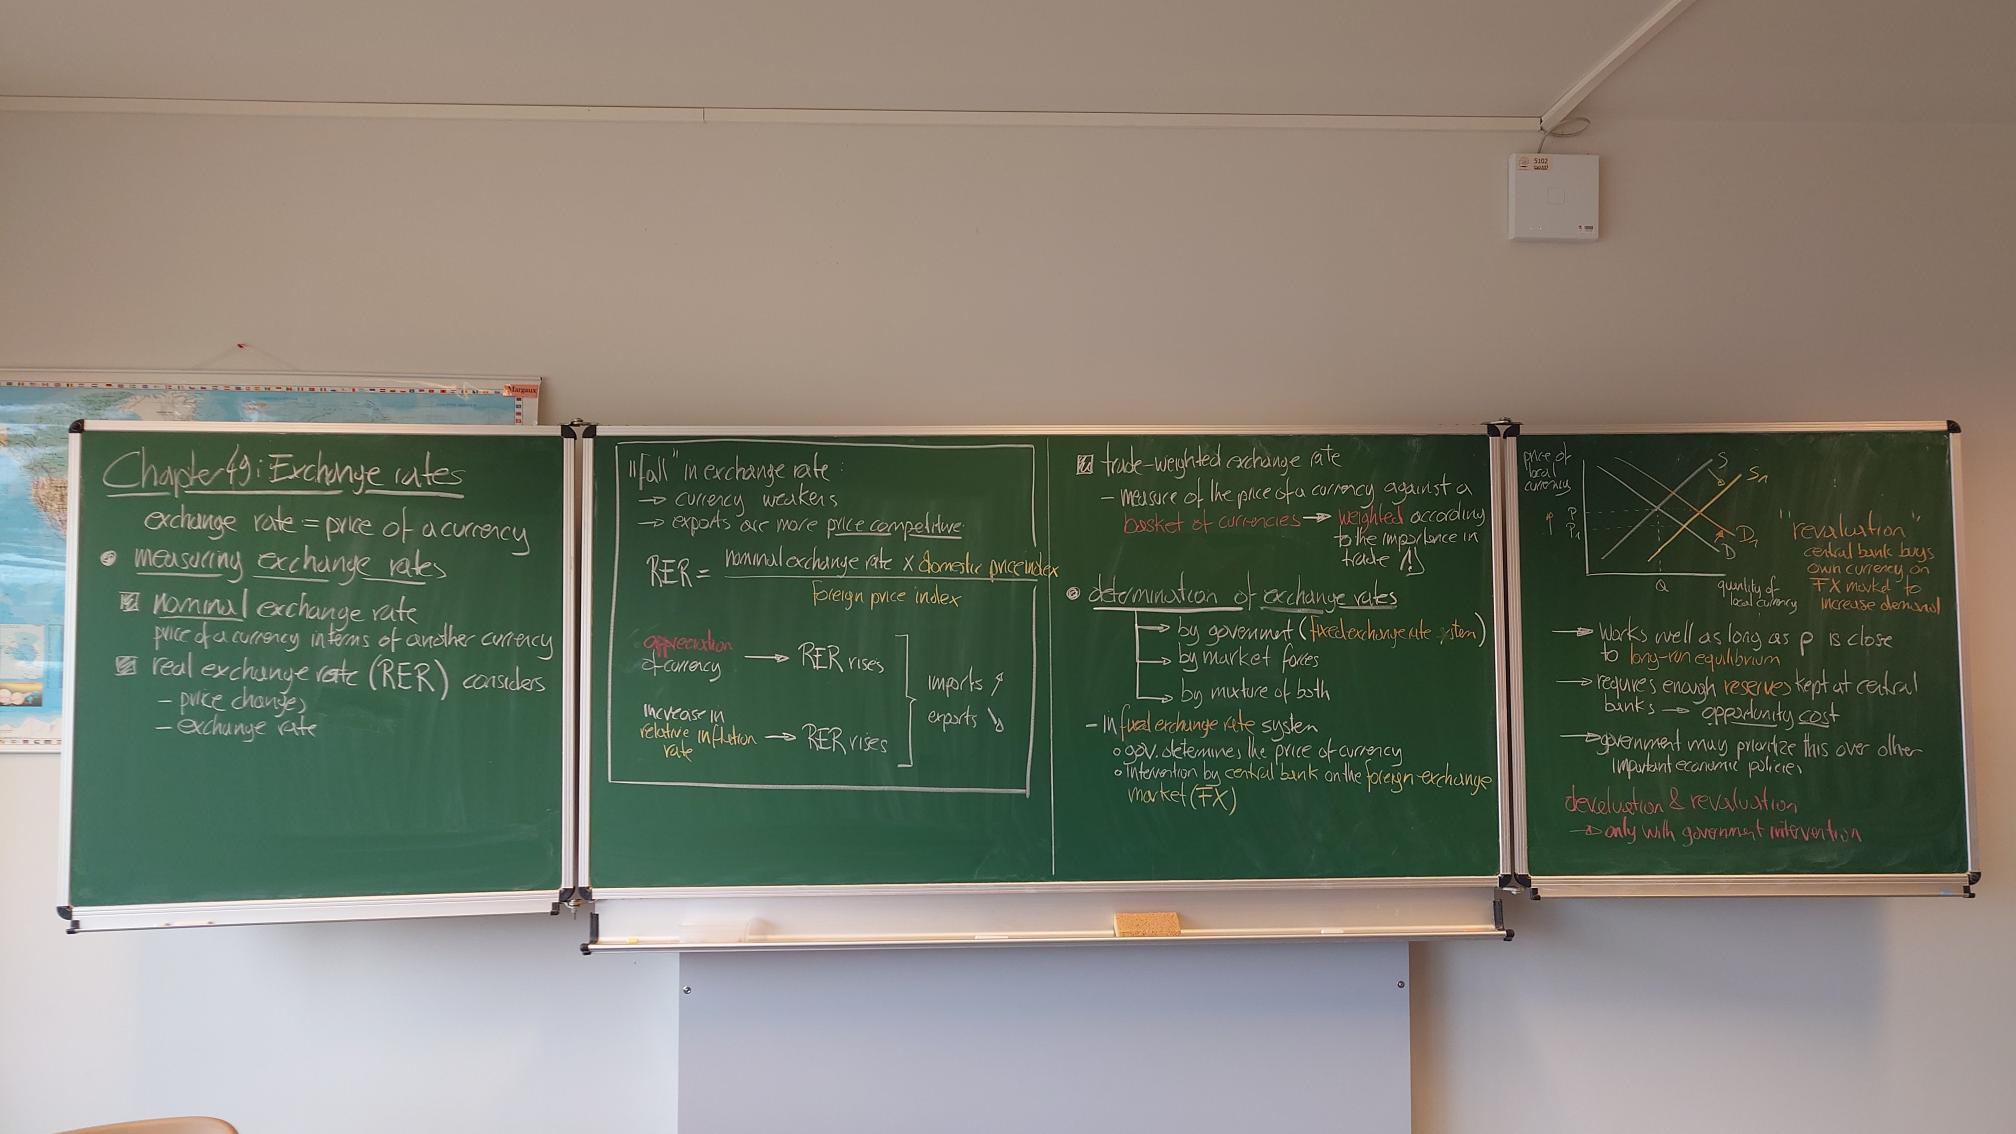 Margaux
S102
Chapter 49: Exchange rates
exchange rate = price of a currency
measuring exchange rates
nominal exchange rate
price of a currency in terms of another currency
real exchange rate (RER) considers
- price changes
- exchange rate
"fall" in exchange rate:
→ currency weakens
→ exports are more price competitive
RER = nominal exchange rate x domestic price index
foreign price index
appreciation
of currency → RER rises
increase in
relative inflation → RER rises
rate
imports ↗
exports ↘
trade-weighted exchange rate
- measure of the price of a currency against a
basket of currencies → weighted according
to the importance in
trade !
determination of exchange rates
→ by government (fixed exchange rate system)
→ by market forces
→ by mixture of both
- in fixed exchange rate system
o gov. determines the price of currency
o intervention by central bank on the foreign exchange
market (FX)
price of
local
currency
↑
P
P1
S
S1
D1
D
Q
quantity of
local currency
"revaluation"
central bank buys
own currency on
FX market to
increase demand
→ works well as long as p is close
to long-run equilibrium
→ requires enough reserves kept at central
banks → opportunity cost
→ government may prioritize this over other
important economic policies
devaluation & revaluation
→ only with government intervention